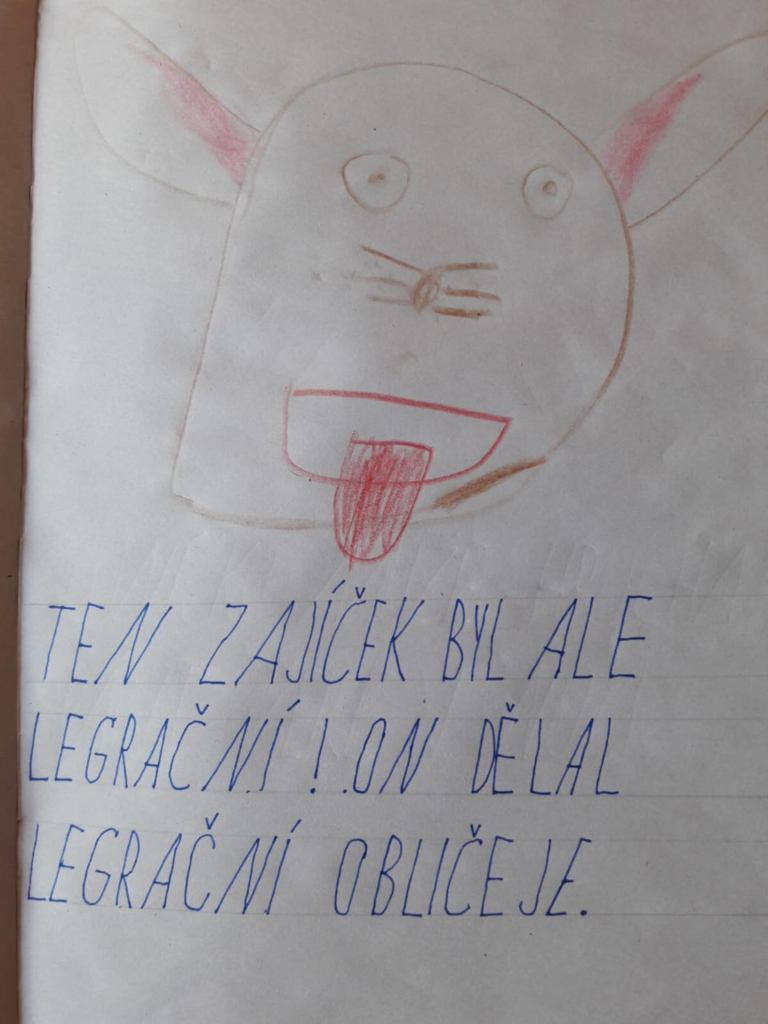 TEN ZAJÍČEK BYL ALE
LEGRAČNÍ! ON DĚLAL
LEGRAČNÍ OBLIČEJE.